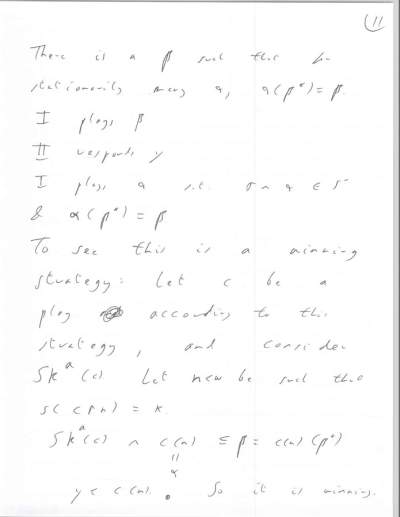 11
There is a β such that for
stationarily many α, α(p*) = β.
I plays β
II responds γ
I plays α s.t. σ⌢α ∈ S
& α(p*) = β
To see this is a winning
strategy: Let c be a
play according to this
strategy, and consider
Sk^a(c). Let n∈ω be such that
s(c↾n) = κ.
Sk^a(c) ∩ c(n) ⊆ β = c(n)(p*)
γ < c(n). So it is winning.